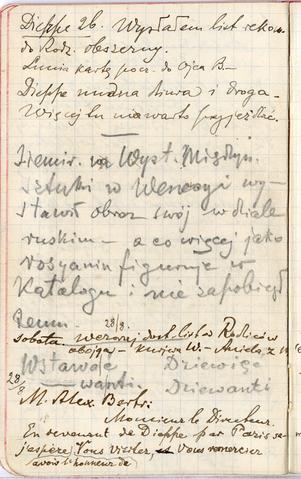 Dieppe 26. Wysłałem list rekom.
do Rodz. obszerny.
Lunia kartę pocz. do Ojca B—
Dieppe nudna dziura i droga—
Więcej tu nie warto przyjeżdżać.
Siemir. na Wyst. Międzyn.
sztuki w Wenecyi wy-
stawił obraz swój w dziale
ruskim — a co więcej jako
rosyanin figuruje w
Katalogu i nie zapobiegł
28/8
Sobota wczoraj list Rodziców
obojga —
Wstawaje Dziewico
28/8
M. Alex. Berti.
Monsieur le Directeur.
En revenant de Dieppe par Paris
j'espère Vous visiter, Vous remercier
avoir l'honneur de